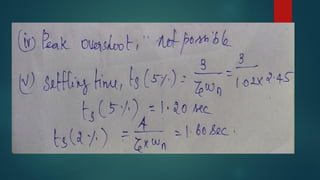 (iv) Peak overshoot, " not possible
(v) Settling time, ts (5%) = 3/ζωn = 3/1.02×2.45
ts (5%) = 1.20 sec
ts (2%) = 4/ζ×ωn = 1.60 sec.